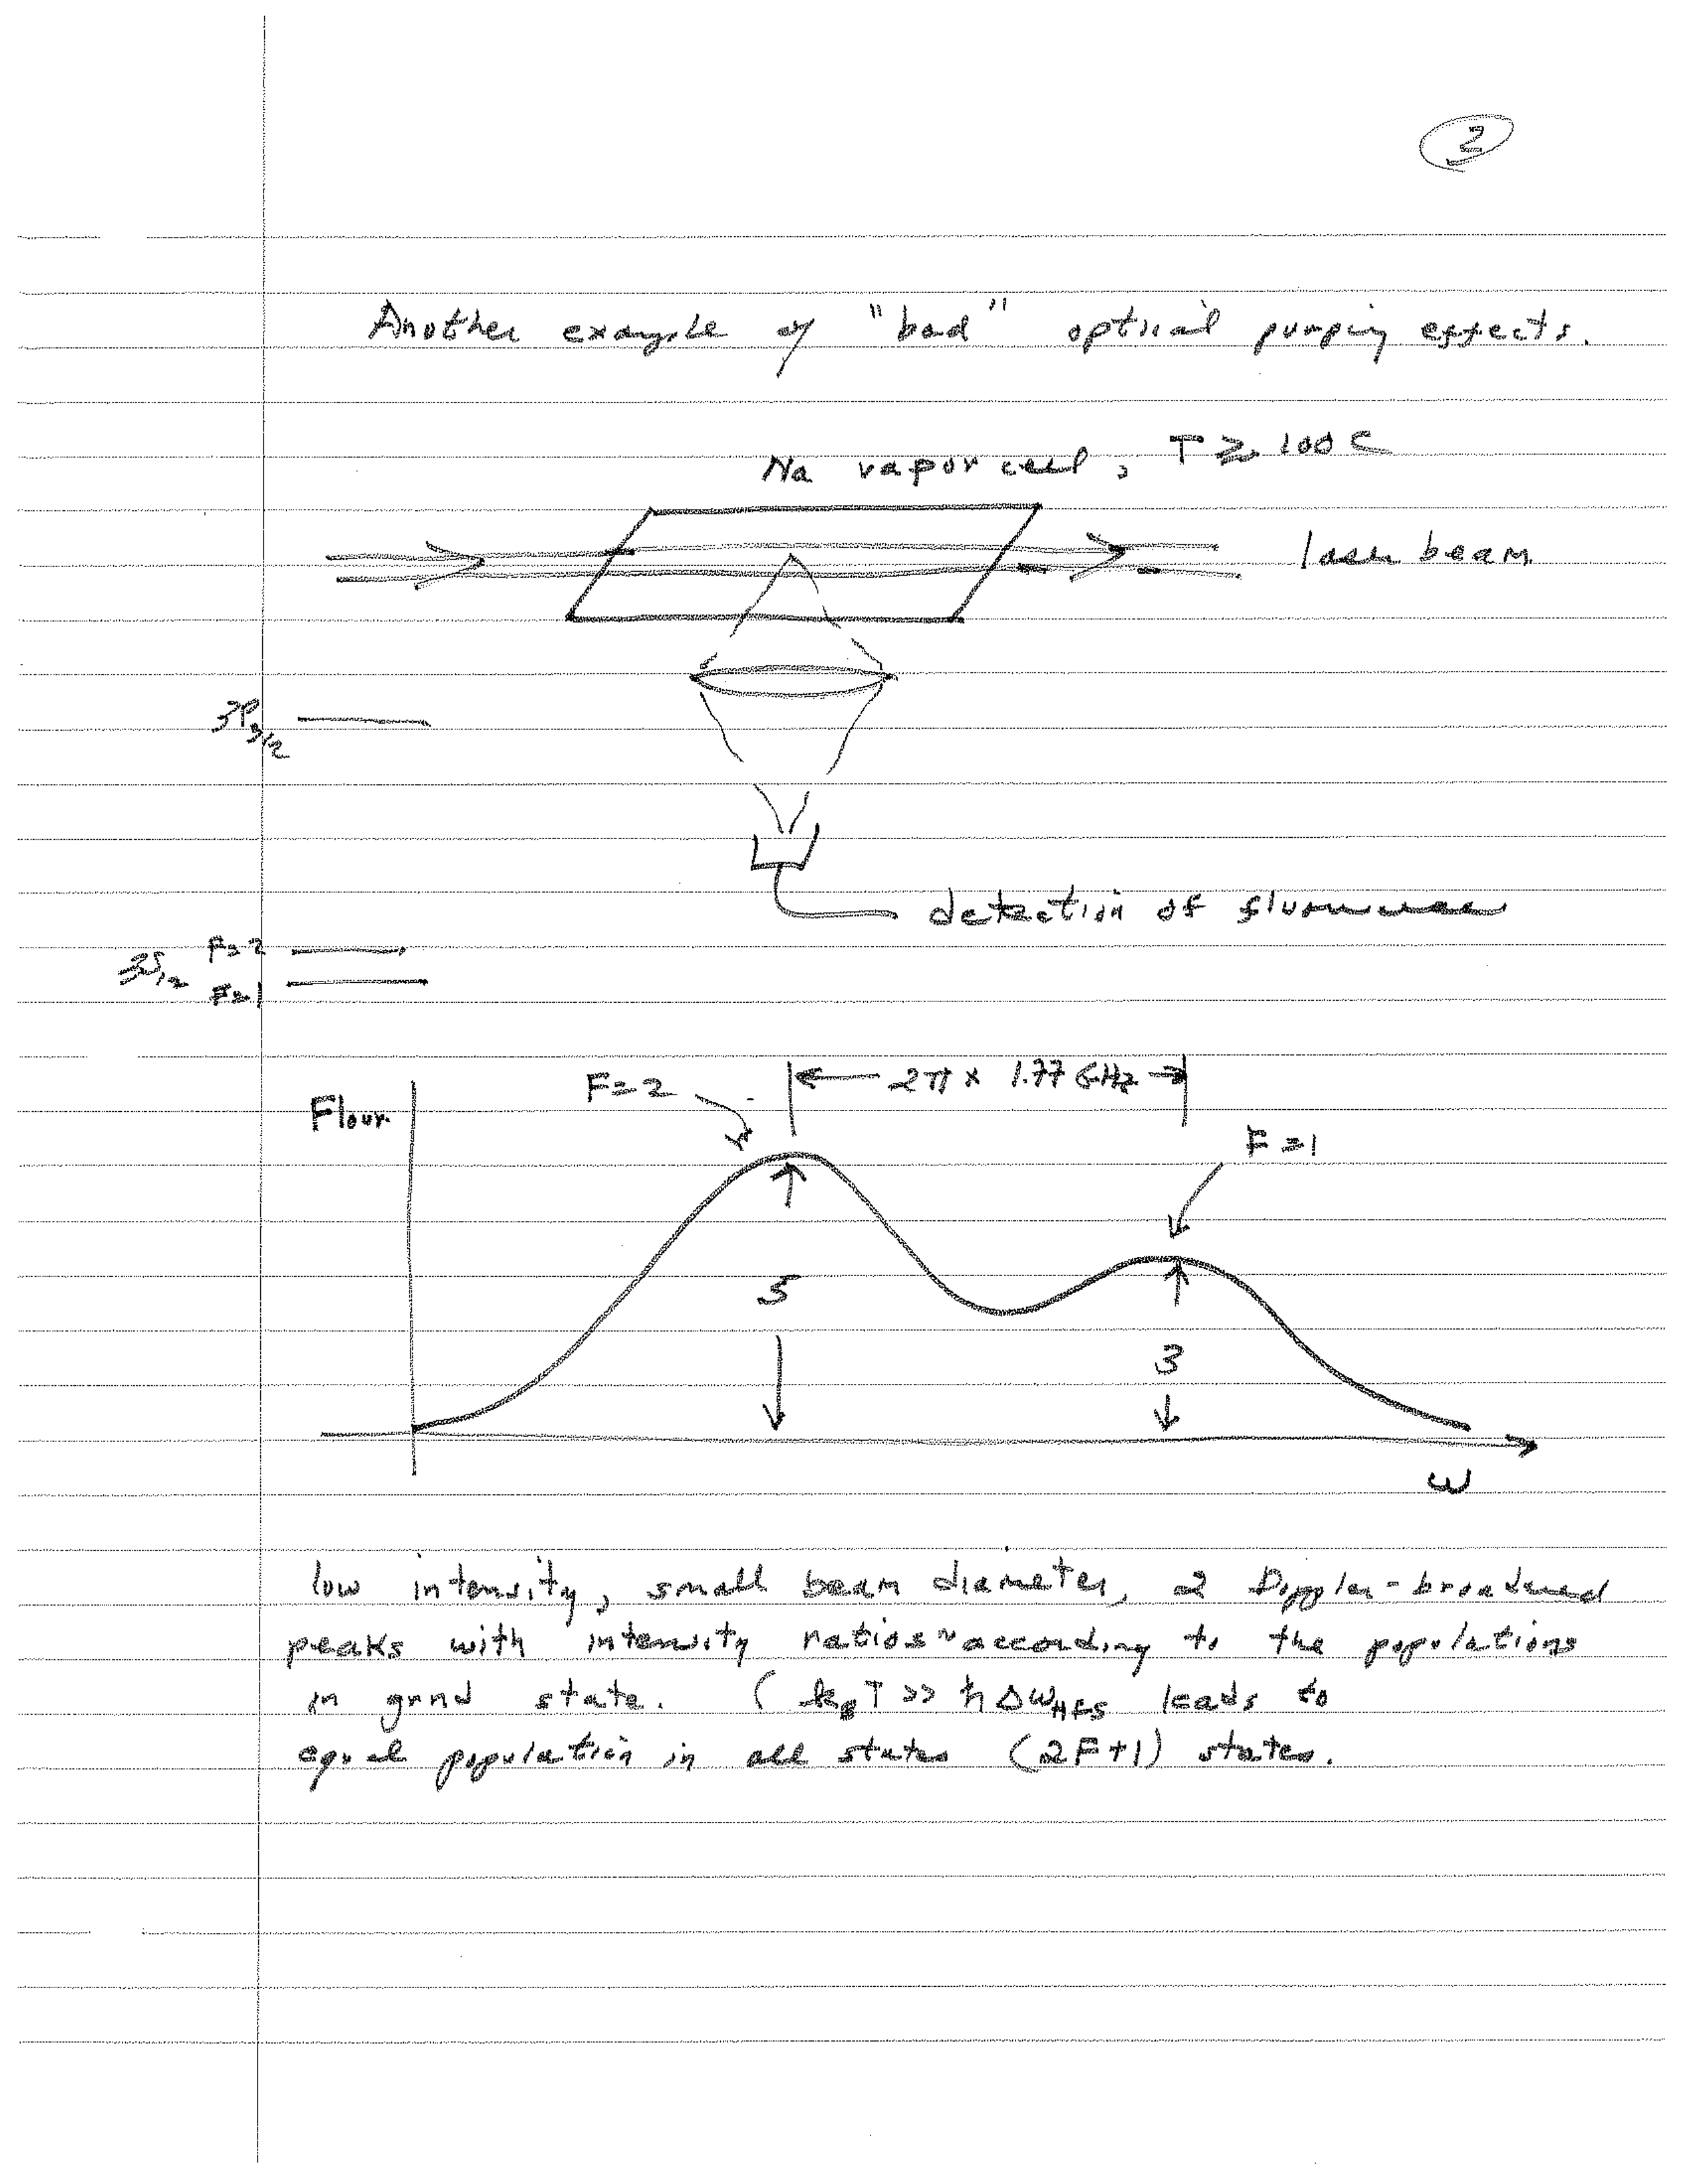 2
Another example of "bad" optical pumping effects.
Na vapor cell, T ≥ 100 C
laser beam
3P3/2
detection of fluorescence
3S1/2 F=2
F=1
2π × 1.77 GHz
F=2
Flour.
F=1
5
3
ω
low intensity, small beam diameter, 2 Doppler-broadened
peaks with intensity ratios ~ according to the populations
in grnd state. (kBT >> ħΔωHFS leads to
equal population in all states (2F+1) states.